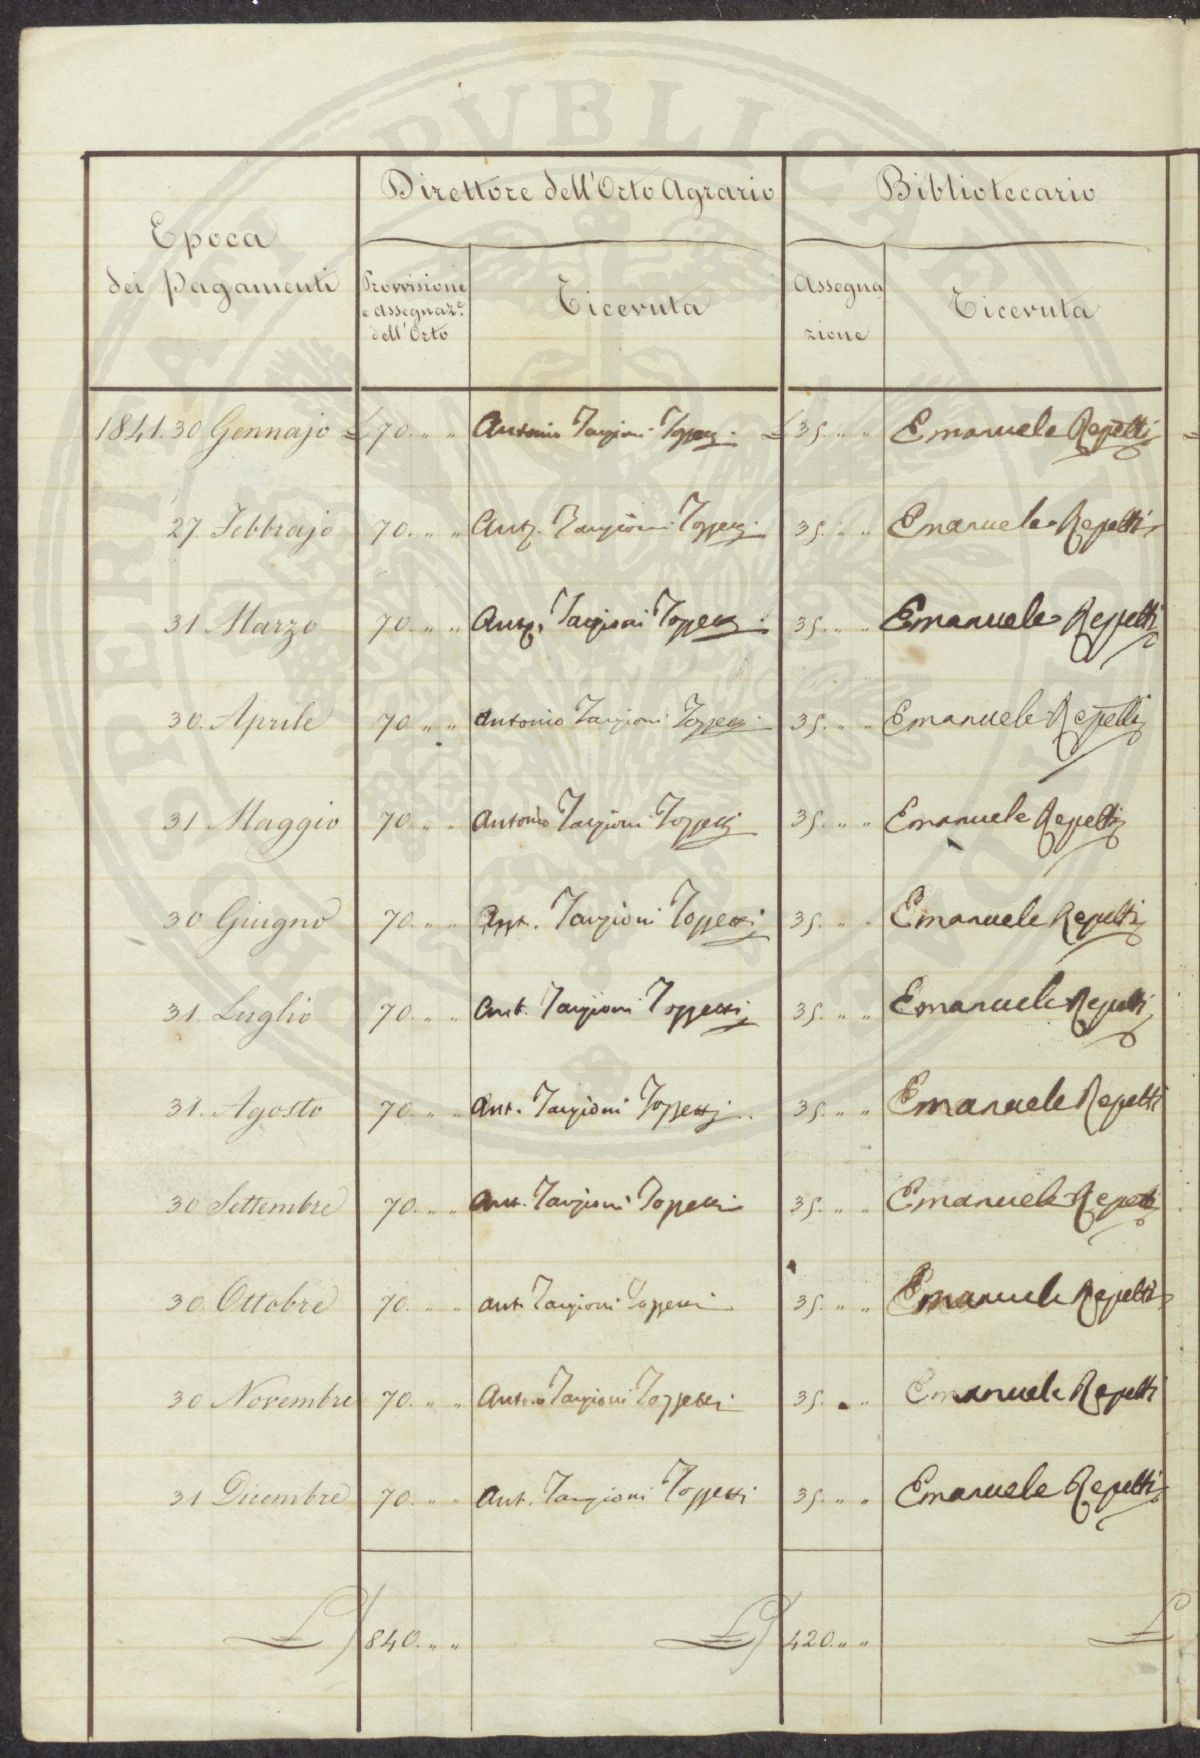 Direttore dell'Orto Agrario
Bibliotecario
Epoca
dei Pagamenti
Provvisione
e assegnaz.e
dell'Orto
Ricevuta
Assegna
zione
Ricevuta
1841. 30 Gennajo £ 70. „ „ Antonio Targioni Tozzetti £ 35. „ „ Emanuele Repetti
27. Febbrajo 70. „ „ Ant. Targioni Tozzetti 35. „ „ Emanuele Repetti
31 Marzo 70. „ „ Ant. Targioni Tozzetti 35. „ „ Emanuele Repetti
30. Aprile 70 „ „ Antonio Targioni Tozzetti 35. „ „ Emanuele Repetti
31 Maggio 70. „ „ Antonio Targioni Tozzetti 35. „ „ Emanuele Repetti
30 Giugno 70. „ „ Ant. Targioni Tozzetti 35. „ „ Emanuele Repetti
31. Luglio 70. „ „ Ant. Targioni Tozzetti 35. „ „ Emanuele Repetti
31. Agosto 70. „ „ Ant. Targioni Tozzetti 35. „ „ Emanuele Repetti
30 Settembre 70. „ „ Ant. Targioni Tozzetti 35. „ „ Emanuele Repetti
30. Ottobre 70. „ „ Ant. Targioni Tozzetti 35. „ „ Emanuele Repetti
30 Novembre 70. „ „ Antonio Targioni Tozzetti 35. „ „ Emanuele Repetti
31 Dicembre 70. „ „ Ant. Targioni Tozzetti 35. „ „ Emanuele Repetti
£ 840. „ „ £ 420. „ „ £